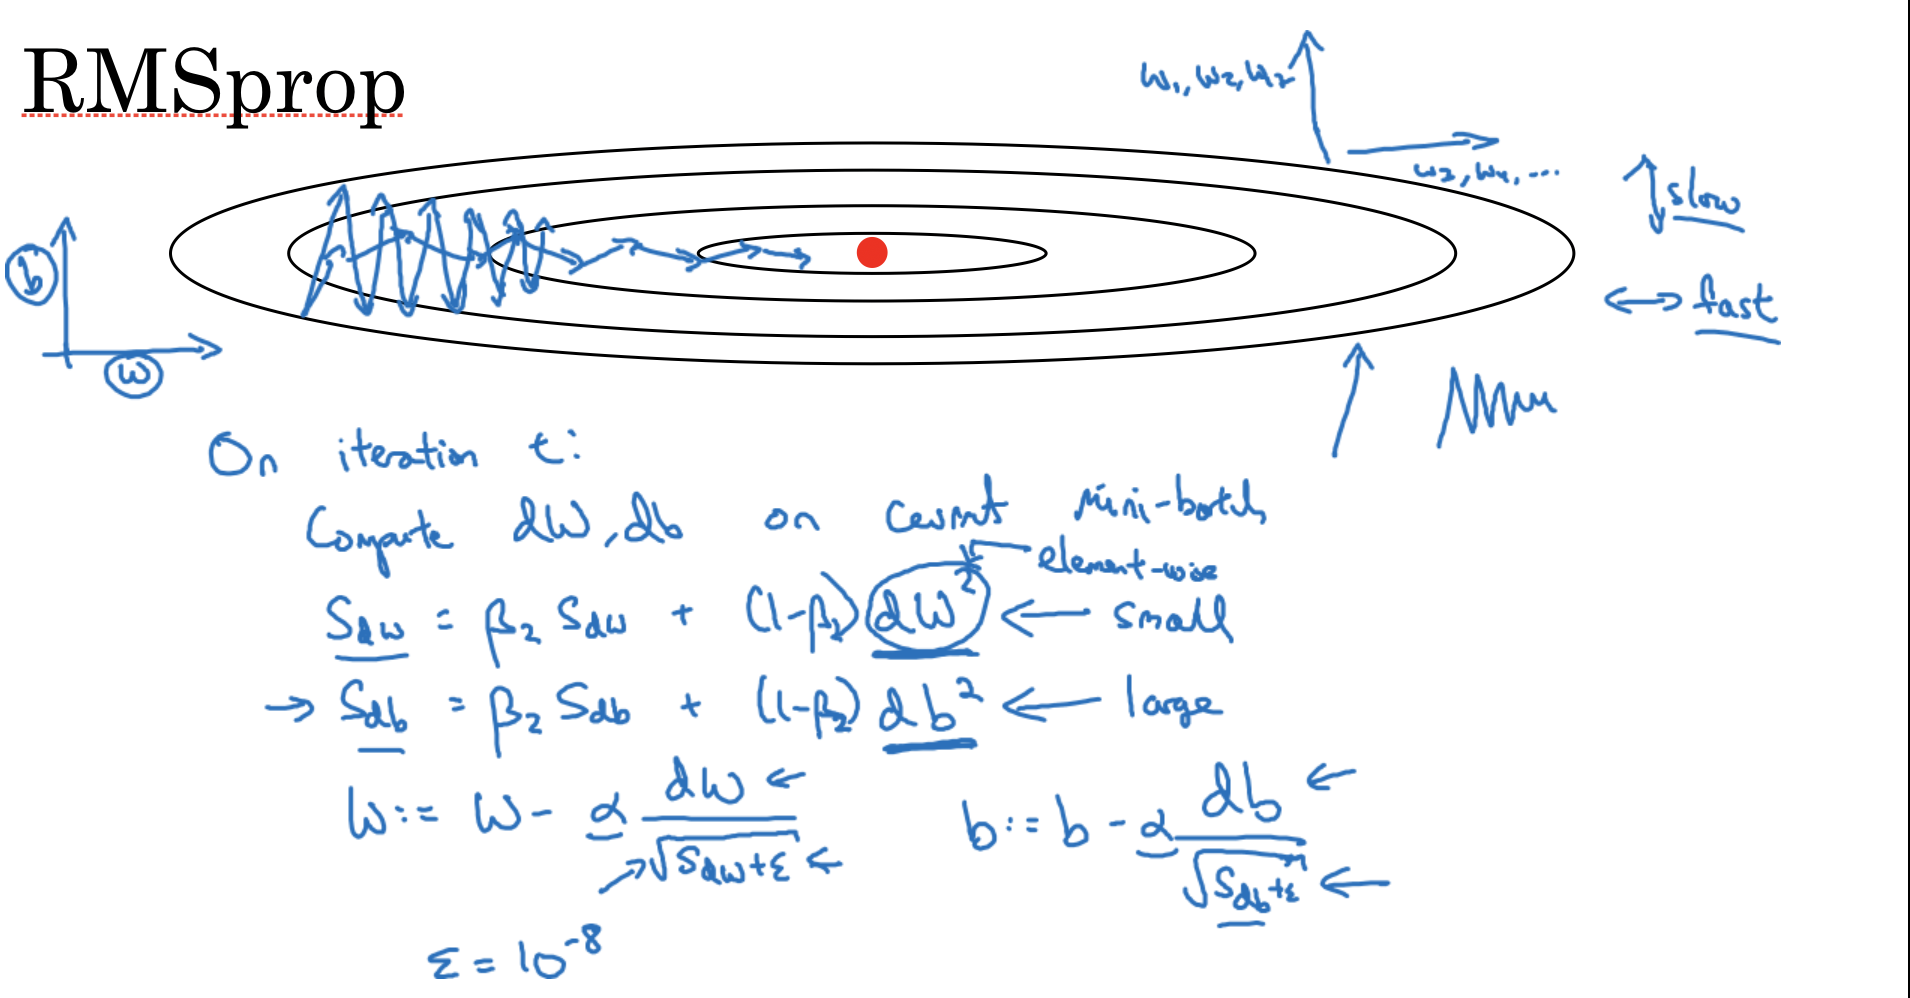 RMSprop
w₁, w₂, w₂
w₃, w₄, ...
slow
fast
b
w
On iteration t:
Compute dW, db on current mini-batch
element-wise
S_dw = β₂ S_dw + (1-β₂) dW² ← small
→ S_db = β₂ S_db + (1-β₂) db² ← large
W := W - α dW/√(S_dw+ε) ← b := b - α db/√(S_db+ε) ←
ε = 10⁻⁸